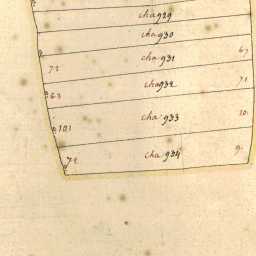 cha 929
cha 930
cha 931 67
72
cha 932 71
63
cha 933
101
cha 934
72